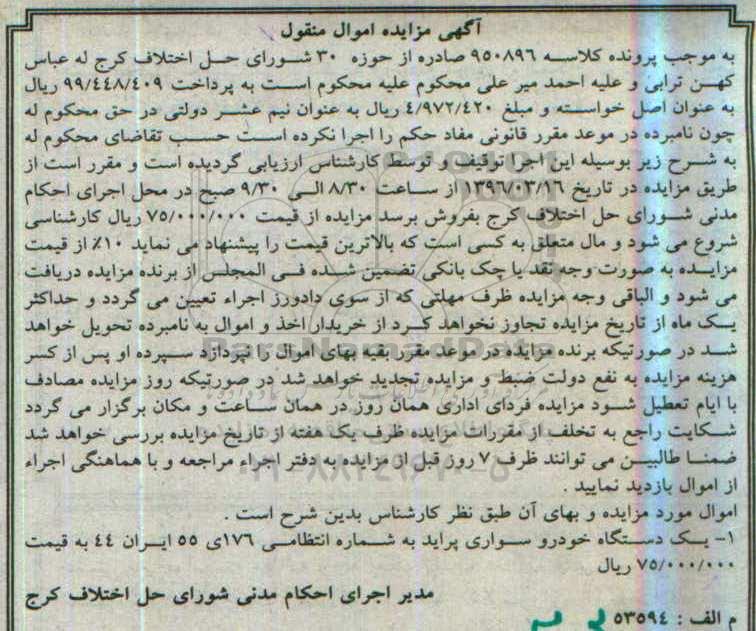 آگهی مزایده اموال منقول
به موجب پرونده کلاسه ۹۵۰۸۹۶ صادره از حوزه ۳۰ شورای حل اختلاف کرج له عباس
کهن ترابی و علیه احمد میر علی محکوم علیه محکوم است به پرداخت ۹۹/۴۴۸/۴۰۹ ریال
به عنوان اصل خواسته و مبلغ ۴/۹۷۲/۴۲۰ ریال به عنوان نیم عشر دولتی در حق محکوم له
چون نامبرده در موعد مقرر قانونی مفاد حکم را اجرا نکرده است حسب تقاضای محکوم له
به شرح زیر بوسیله این اجرا توقیف و توسط کارشناس ارزیابی گردیده است و مقرر است از
طریق مزایده در تاریخ ۱۳۹۶/۰۳/۱۶ از ساعت ۸/۳۰ الی ۹/۳۰ صبح در محل اجرای احکام
مدنی شورای حل اختلاف کرج بفروش برسد مزایده از قیمت ۷۵/۰۰۰/۰۰۰ ریال کارشناسی
شروع می شود و مال متعلق به کسی است که بالاترین قیمت را پیشنهاد می نماید ۱۰٪ از قیمت
مزایده به صورت وجه نقد یا چک بانکی تضمین شده فی المجلس از برنده مزایده دریافت
می شود و الباقی وجه مزایده ظرف مهلتی که از سوی دادورز اجراء تعیین می گردد و حداکثر
یک ماه از تاریخ مزایده تجاوز نخواهد کرد از خریدار اخذ و اموال به نامبرده تحویل خواهد
شد در صورتیکه برنده مزایده در موعد مقرر بقیه بهای اموال را نپردازد سپرده او پس از کسر
هزینه مزایده به نفع دولت ضبط و مزایده تجدید خواهد شد در صورتیکه روز مزایده مصادف
با ایام تعطیل شود مزایده فردای اداری همان روز در همان ساعت و مکان برگزار می گردد
شکایت راجع به تخلف از مقررات مزایده ظرف یک هفته از تاریخ مزایده بررسی خواهد شد
ضمنا طالبین می توانند ظرف ۷ روز قبل از مزایده به دفتر اجراء مراجعه و با هماهنگی اجراء
از اموال بازدید نمایید .
اموال مورد مزایده و بهای آن طبق نظر کارشناس بدین شرح است .
۱- یک دستگاه خودرو سواری پراید به شماره انتظامی ۱۷۶ی ۵۵ ایران ۴۴ به قیمت
۷۵/۰۰۰/۰۰۰ ریال
مدیر اجرای احکام مدنی شورای حل اختلاف کرج
م الف : ۵۳۵۹۴
ParsNamadData
۰۲۱-۸۸۳۴۹۶۷۰-۵